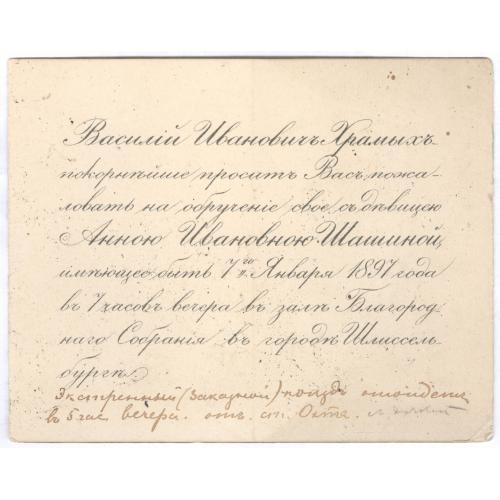 Василій Ивановичъ Храмыхъ
покорнѣйше проситъ Васъ, пожа-
ловать на обрученіе свое съ дѣвицею
Анною Ивановною Шашиной,
имѣющее быть 7го Января 1897 года
въ 7 часовъ вечера въ залѣ Благород-
наго Собранія въ городѣ Шлиссель-
бургѣ.
Экстренный (заказной) поѣздъ отойдетъ
въ 5 час вечера. отъ ст. Охта.